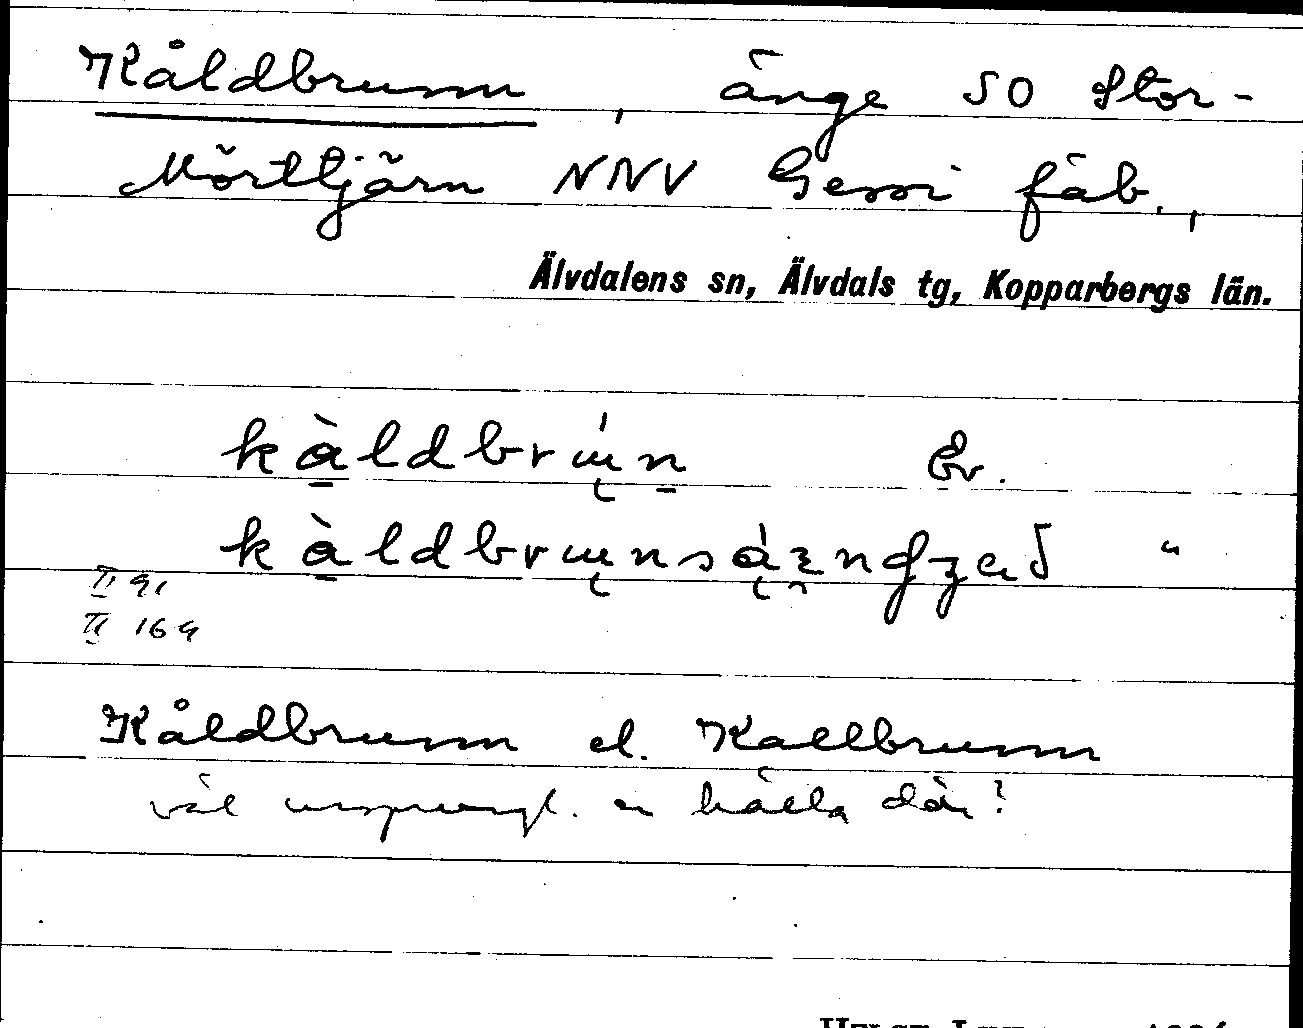 Kåldbrunn, änge SO Stor-
Mörttjärn NNV Gessi fäb.,
Älvdalens sn, Älvdals tg, Kopparbergs län.
kàldbrɯ́n Ev.
kàldbrɯnsáɛngʒað "
II 91
II 169
Kåldbrunn el. Kallbrunn
väl urspungl. en källa där?